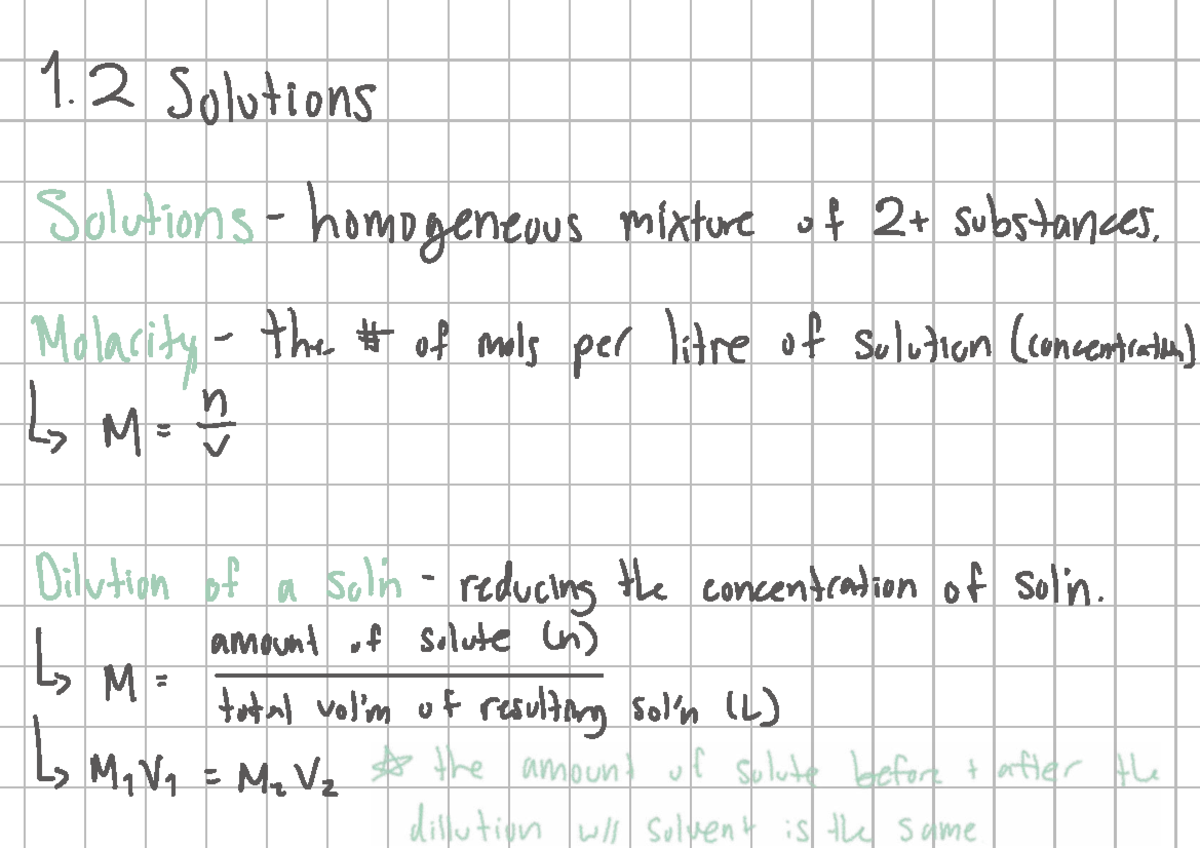 1.2 Solutions
Solutions - homogeneous mixture of 2+ substances.
Molacity - the # of mols per litre of solution (concentration)
↳ M = n/v
Dilution of a sol'n - reducing the concentration of sol'n.
↳ M = amount of solute (n) / total vol'm of resulting sol'n (L)
↳ M₁V₁ = M₂V₂ ☆ the amount of solute before + after the
dillution w/ solvent is the same